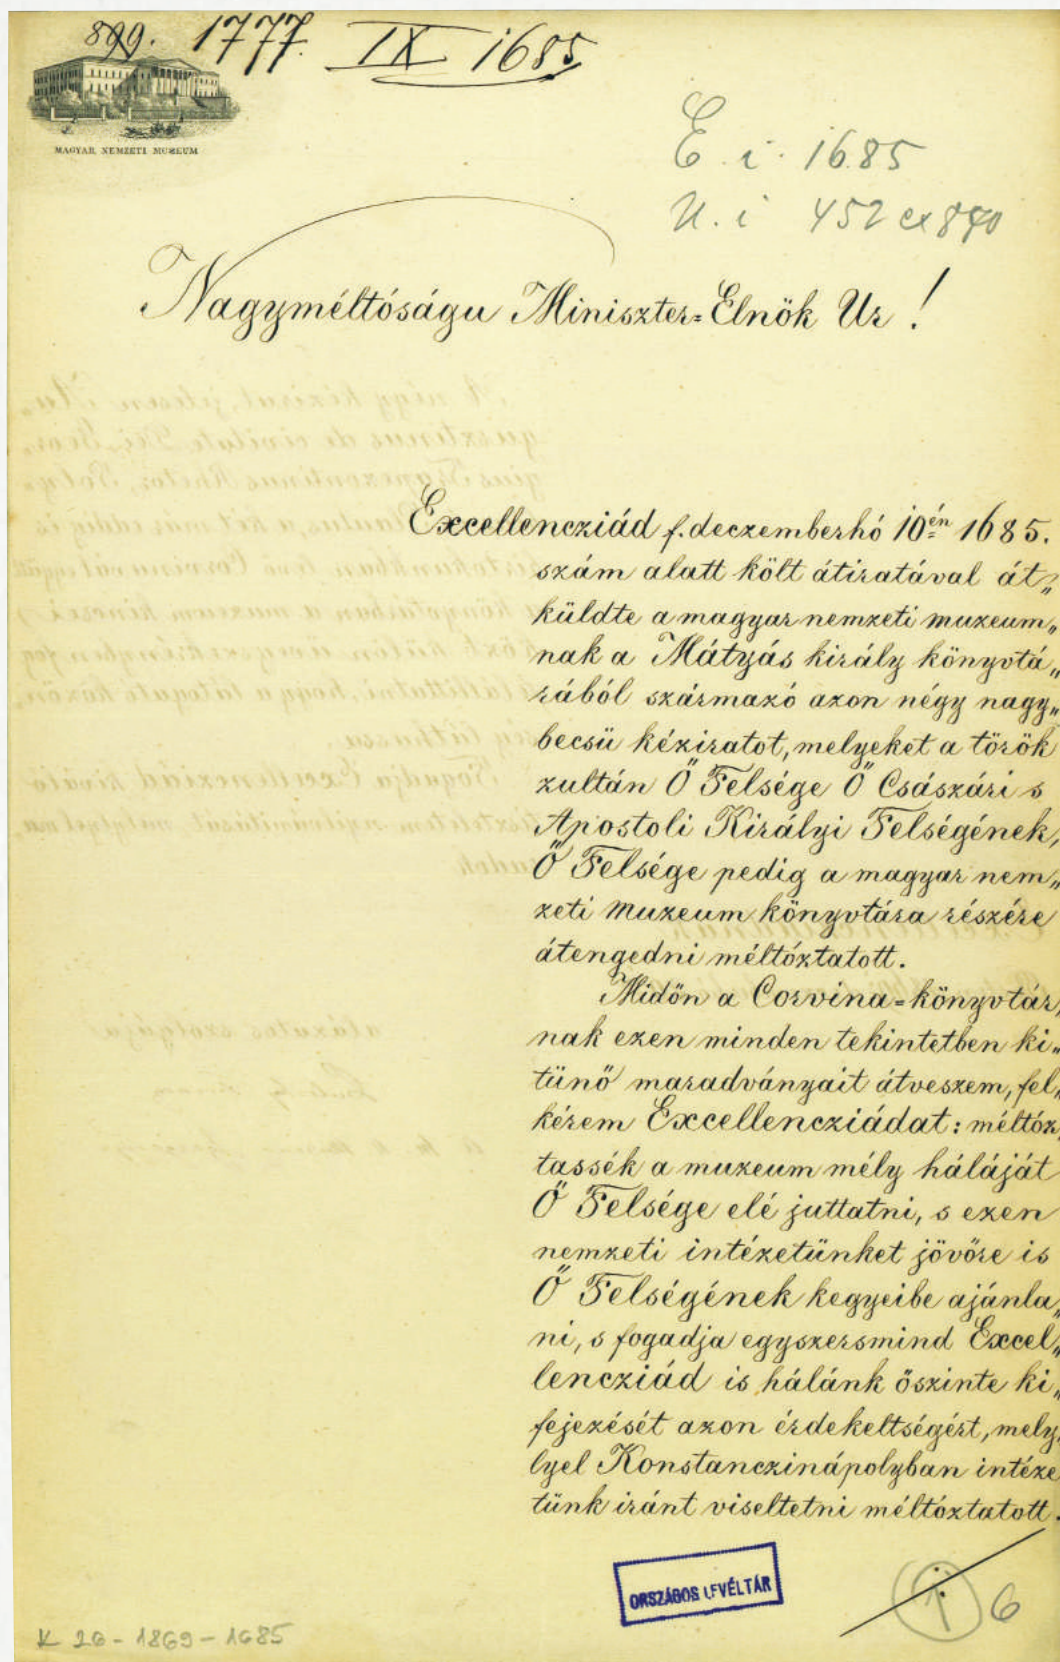 899. 1777. IX 1685
MAGYAR NEMZETI MUZEUM
E. i. 1685
U. i 452 ex 870
Nagyméltóságu Miniszter=Elnök Ur!
Excellencziád f. deczemberhó 10én 1685.
szám alatt költ átiratával át„
küldte a magyar nemzeti muzeum„
nak a Mátyás király könyvtá„
rából származó azon négy nagy„
becsü kéziratot, melyeket a török
zultán Ő Felsége Ő Császári s
Apostoli Királyi Felségének,
Ő Felsége pedig a magyar nem„
zeti muzeum könyvtára részére
átengedni méltóztatott.
Midőn a Corvina=könyvtár,
nak ezen minden tekintetben ki„
tünő maradványait átveszem, fel„
kérem Excellencziádat: méltóz,
tassék a muzeum mély háláját
Ő Felsége elé juttatni, s ezen
nemzeti intézetünket jövőre is
Ő Felségének kegyeibe ajánla„
ni, s fogadja egyszersmind Excel„
lencziád is hálánk őszinte ki„
fejezését azon érdekeltségért, mely,
lyel Konstanczinápolyban intéze
tünk iránt viseltetni méltóztatott.
ORSZÁGOS LEVÉLTÁR
6
K 26 - 1869 - 1685